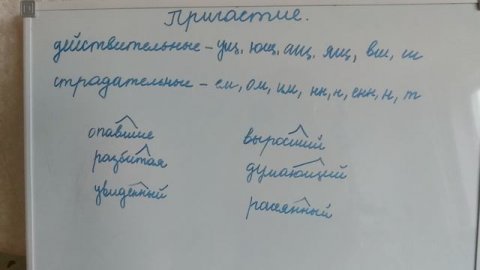 Причастие.
действительные – ущ, ющ, ащ, ящ, вш, ш
страдательные – ем, ом, им, нн, н, енн, н, т
опавшие
выросший
разбитая
думающий
увиденный
рассеянный